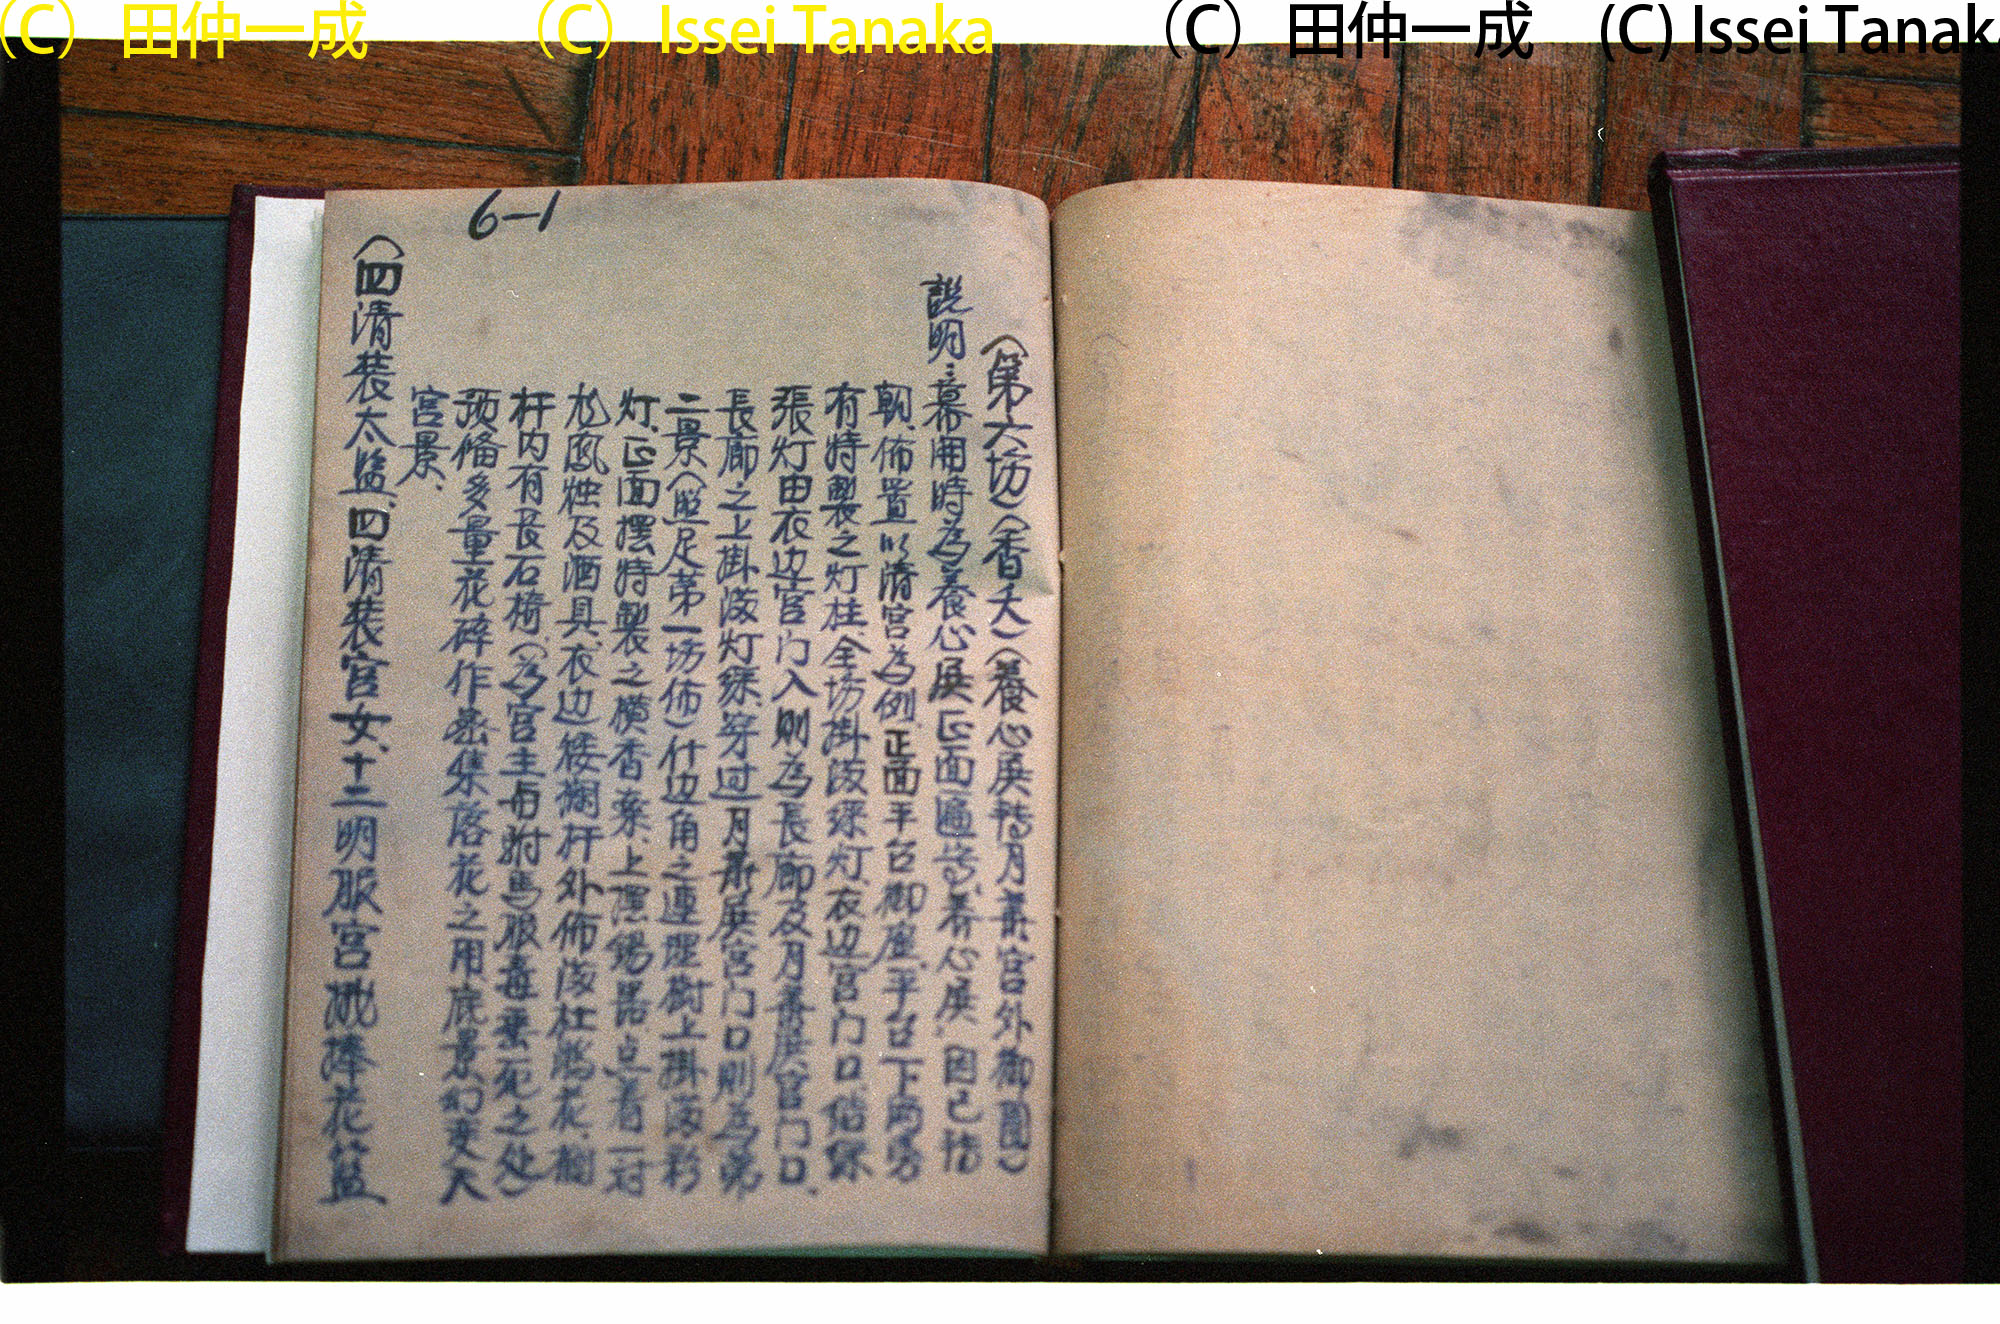 (C) 田仲一成 (C) Issei Tanaka (C) 田仲一成 (C) Issei Tanaka
6-1
(第六场)(香夭)(養心殿轉月華宮外御園)
説明:幕開時為養心殿正面匾書養心殿.因已清
朝.佈置以清宮為例.正面平台御座.平台下兩旁
有特製之灯柱.全场掛滿綵灯.衣边宮门口.結綵
張灯由衣边宮门入則為長廊及月華殿宮门口.
長廊之上掛滿灯綵.穿过月華殿宮门口則為第
二景(照足第一场佈)什边角之連理樹上掛滿彩
灯.正面擺特製之横香案.上擺錫器.点着一对
龙凤烛及酒具.衣边)後欄杆外佈滿杜鵑花.欄
杆内有長石椅.(為宮主与駙馬服毒死之处)
预備多量花碎作密集落花之用底景幻变大
宮景.
(四清裝太監.四清裝宮女.十二明服宮娥捧花籃